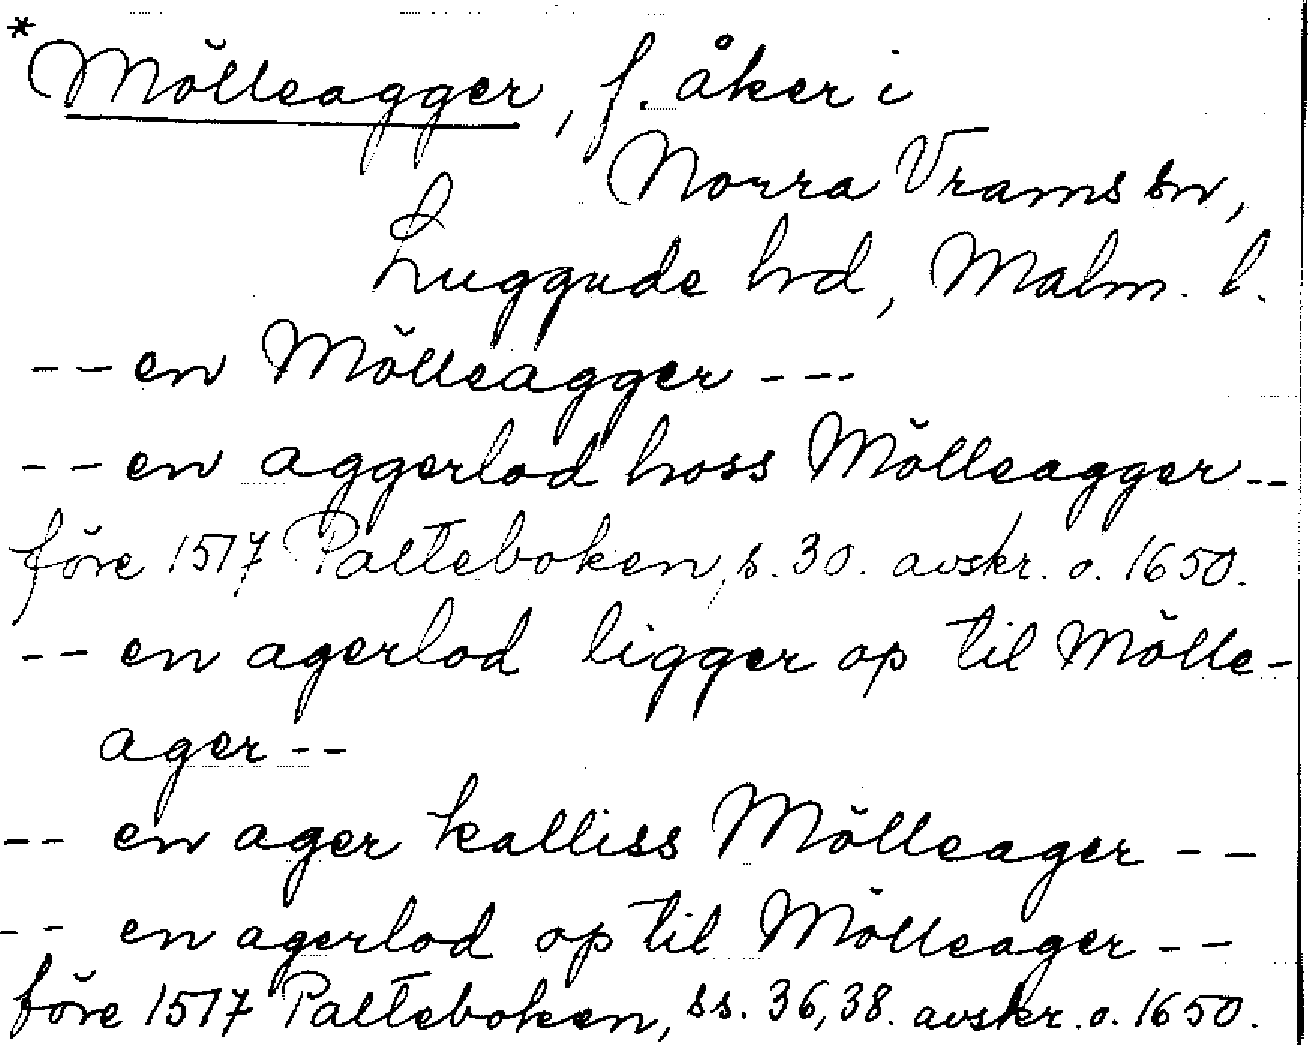 *Mölleagger, f. åker i
Norra Vrams sn,
Luggude hd, Malm. l.
-- en Mölleagger ---
-- en aggerlod hoss Mölleagger --
före 1517 Palteboken, s. 30. avskr. o. 1650.
-- en agerlod ligger op til Mölle-
ager --
-- en ager kalliss Mölleager --
-- en agerlod op til Mölleager --
före 1517 Palteboken, ss. 36, 38. avskr. o. 1650.